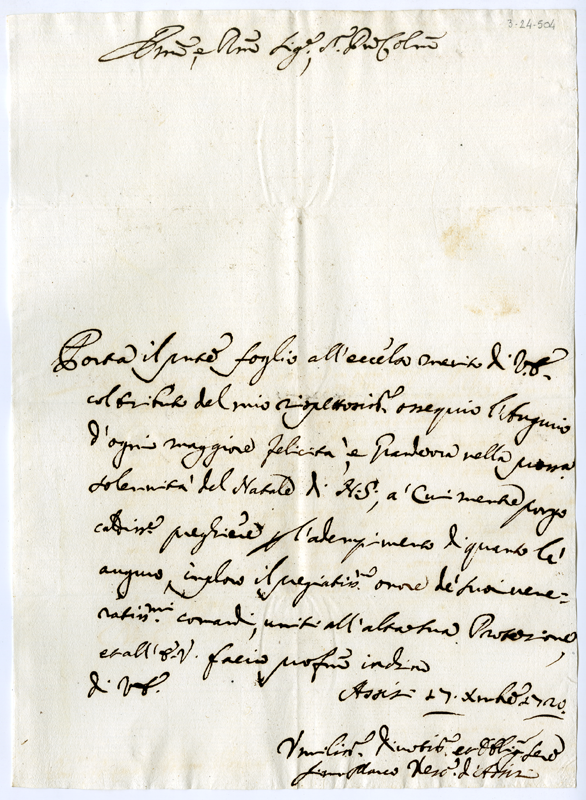 3-24-504
Porta il pnte foglio all'eccelso merito di V.E.
col tributo del mio rispettosiss.º ossequio l'Augurio
d'ogni maggiore felicità, e Grandezza nella prossa
solennità del Natale di N.S., a' Cui mentre porgo
caldiss.e preghiere p l'adempimento di quanto le
auguro, imploro il pregiatiss.º onore de' suoi vene=
ratiss.mi comandi, uniti all'alta sua Protezione,
et all'E.V. facio profm̃o inchino
di V.E.
Assisi 17. Xmbre 1720.
Umiliss.º Divotiss.º et Obblig.º Sere
Vesc.º d'Assisi